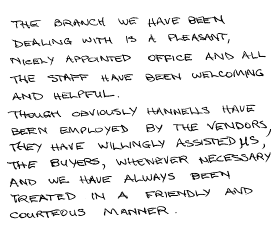 THE BRANCH WE HAVE BEEN
DEALING WITH IS A PLEASANT,
NICELY APPOINTED OFFICE AND ALL
THE STAFF HAVE BEEN WELCOMING
AND HELPFUL.
THOUGH OBVIOUSLY HANNELLS HAVE
BEEN EMPLOYED BY THE VENDORS,
THEY HAVE WILLINGLY ASSISTED US,
THE BUYERS, WHENEVER NECESSARY
AND WE HAVE ALWAYS BEEN
TREATED IN A FRIENDLY AND
COURTEOUS MANNER.